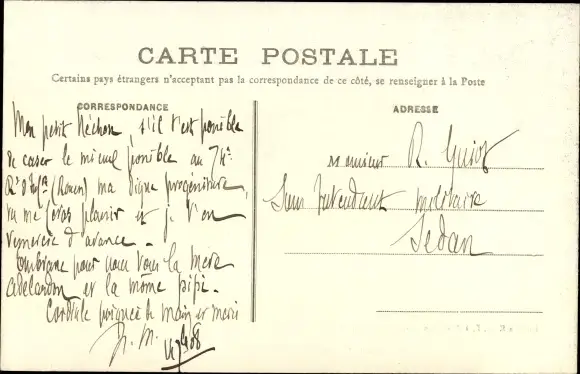 CARTE POSTALE
Certains pays étrangers n'acceptant pas la correspondance de ce côté, se renseigner à la Poste
CORRESPONDANCE
Mon petit Néchon s'il t'est possible
de caser le mieux possible au 7e
Rt d'Infie (Rouen) ma digne progéniture,
tu me feras plaisir et je t'en
remercie d'avance.
pour nous tous la mère
et la môme pipi.
Cordiale poignée de main et merci
M.
ADRESSE
Monsieur R. Guiot
Sous Intendant militaire
Sedan